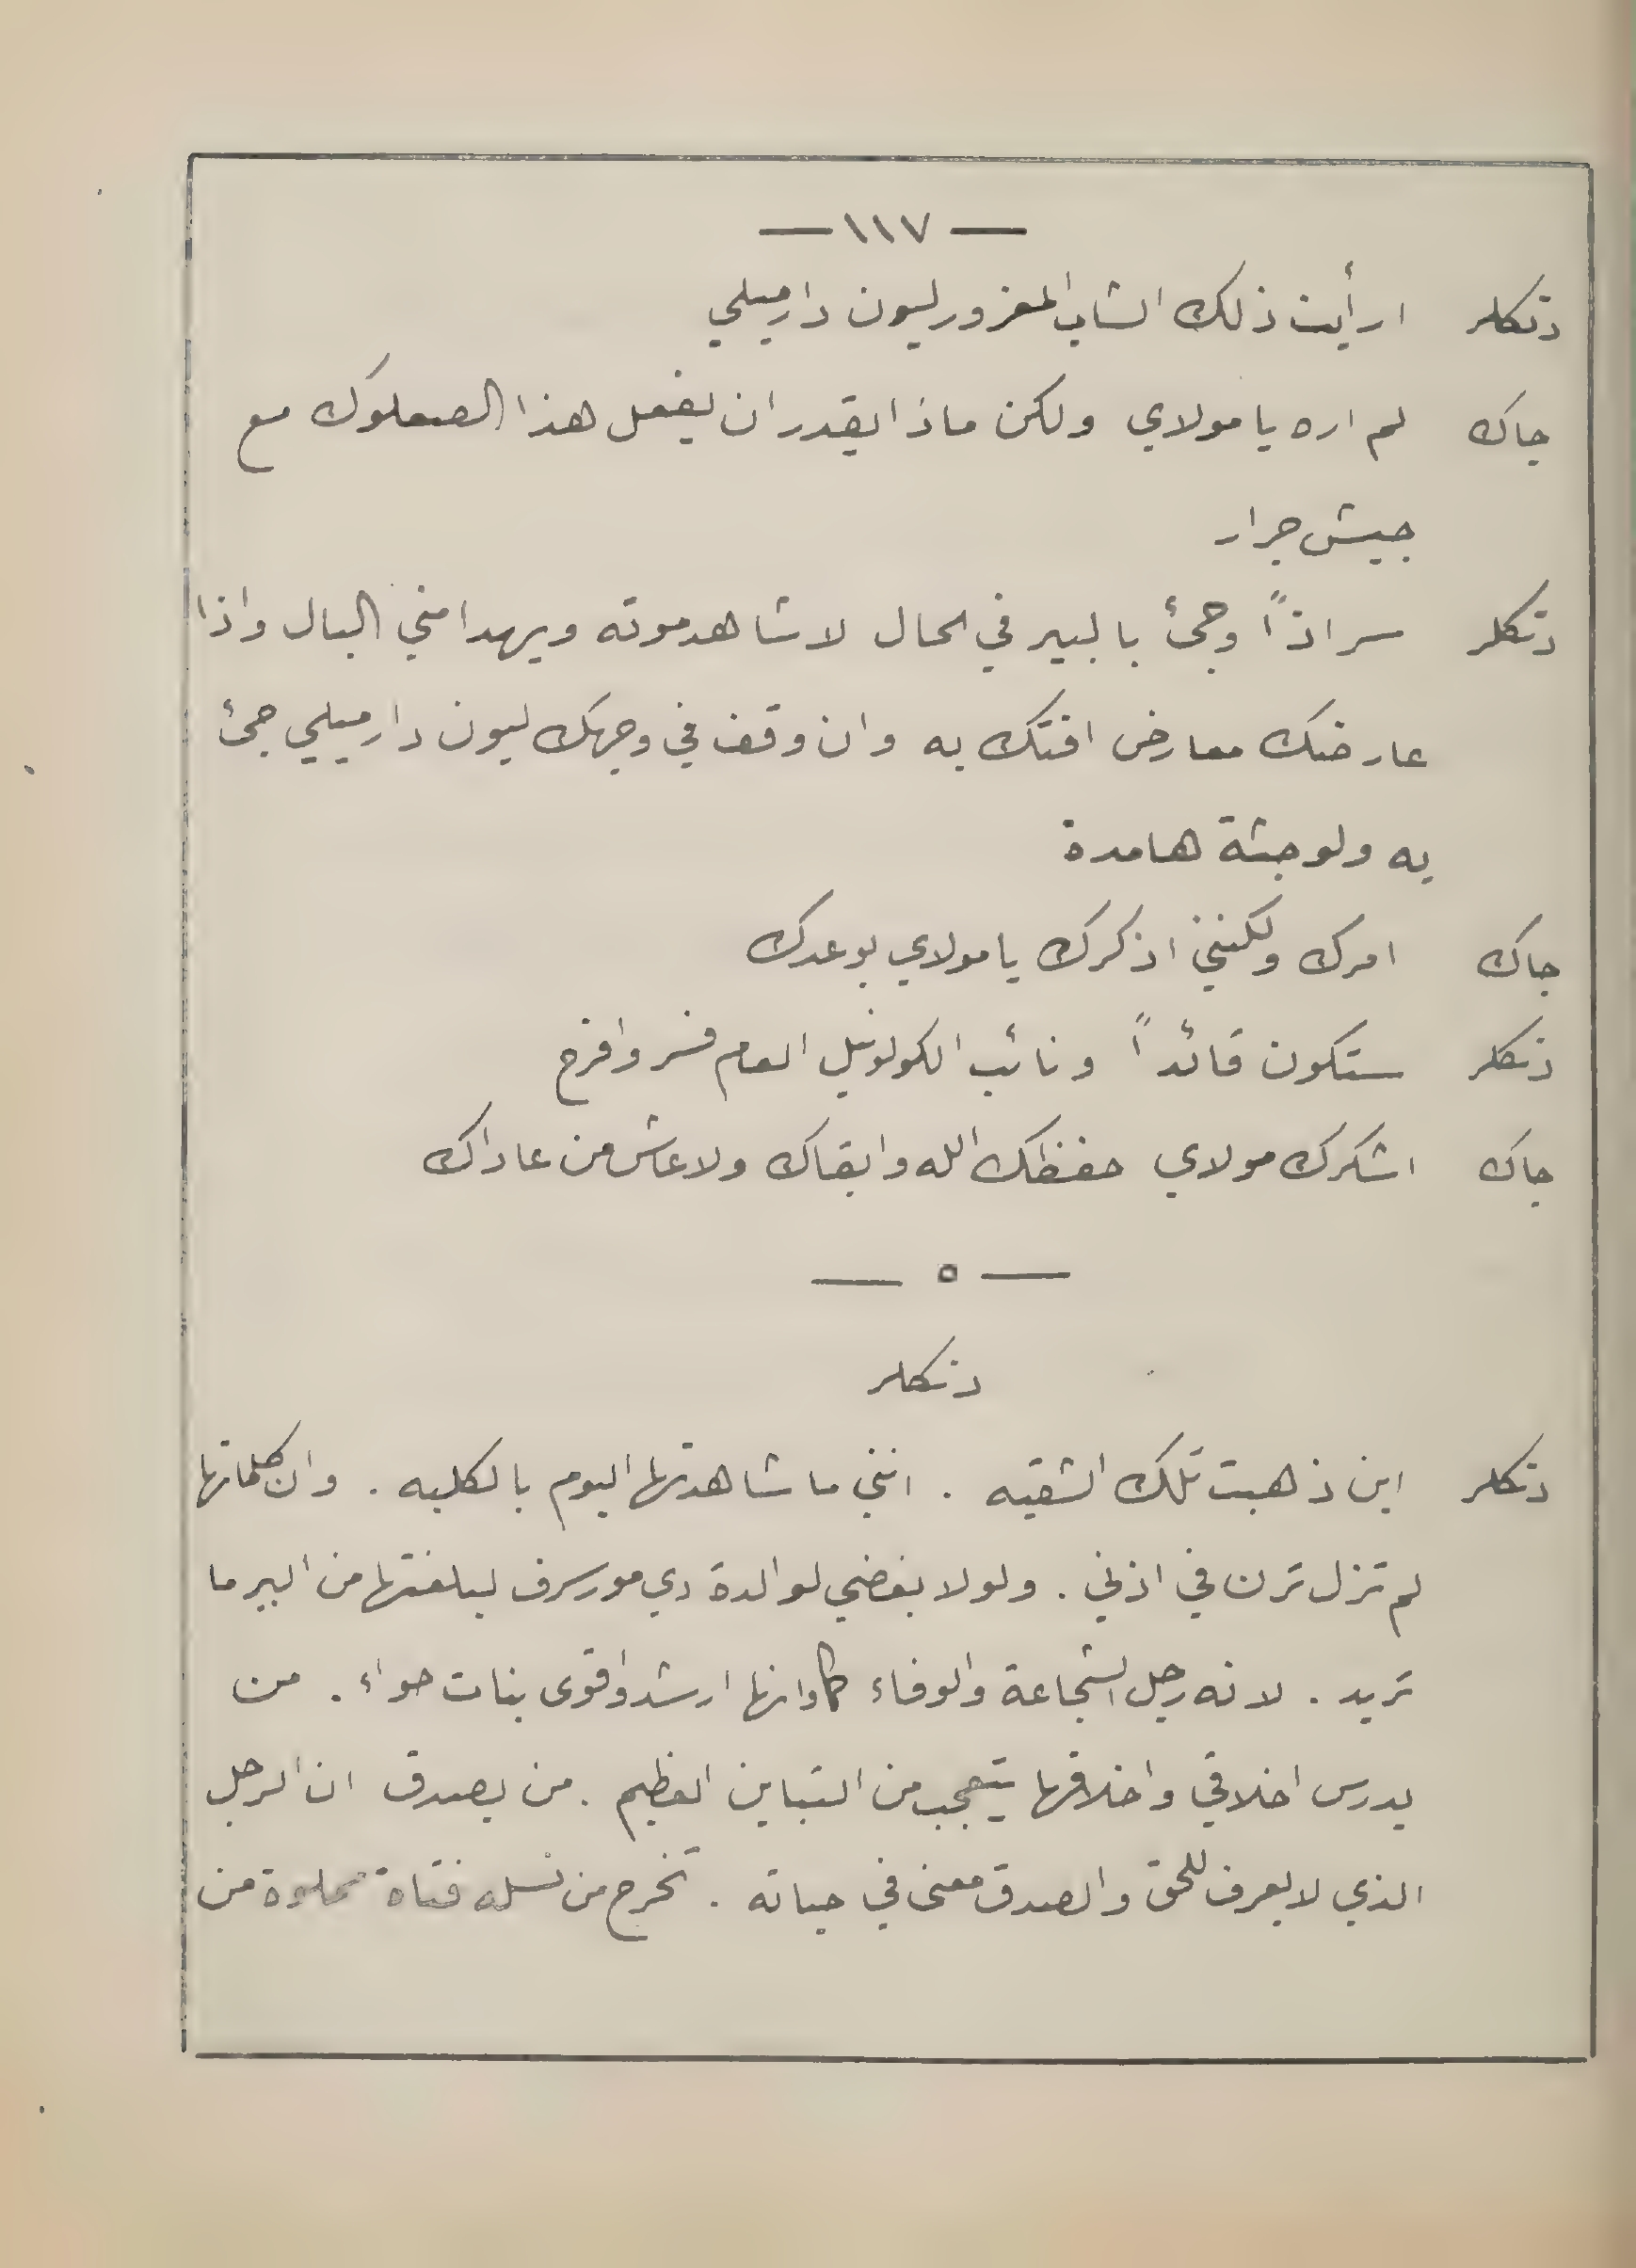 — ١١٧ —
دنكلر ارأيت ذلك الشاب المغرور ليون دارميلي
جاك لم اره يا مولاي ولكن ماذا يقدر ان يفعل هذا الصعلوك مع
جيش جرار
دنكلر سر اذاً وجئ بالبير في الحال لاشاهد موته ويهدا مني البال واذا
عارضك معارض افتك به وان وقف في وجهك ليون دارميلي جئ
به ولو جثة هامدة
جاك امرك ولكنني اذكرك يا مولاي بوعدك
دنكلر ستكون قائداً ونائب الكولونيل العام فسر وافرح
جاك اشكرك مولاي حفظك الله وابقاك ولا عاش من عاداك
— ٥ —
دنكلر
دنكلر اين ذهبت تلك الشقيه . انني ما شاهدتها اليوم بالكليه . وان كلماتها
لم تزل ترن في اذني . ولولا بغضي لوالدة دي مورسرف لبلغتها من البير ما
تريد . لانه رجل الشجاعة والوفاء كما وانها ارشد واقوى بنات حواء . من
يدرس اخلاقي واخلاقها يتعجب من التباين العظيم . من يصدق ان الرجل
الذي لا يعرف للحق والصدق معنى في حياته . تخرج من نسله فتاة مملوءة من